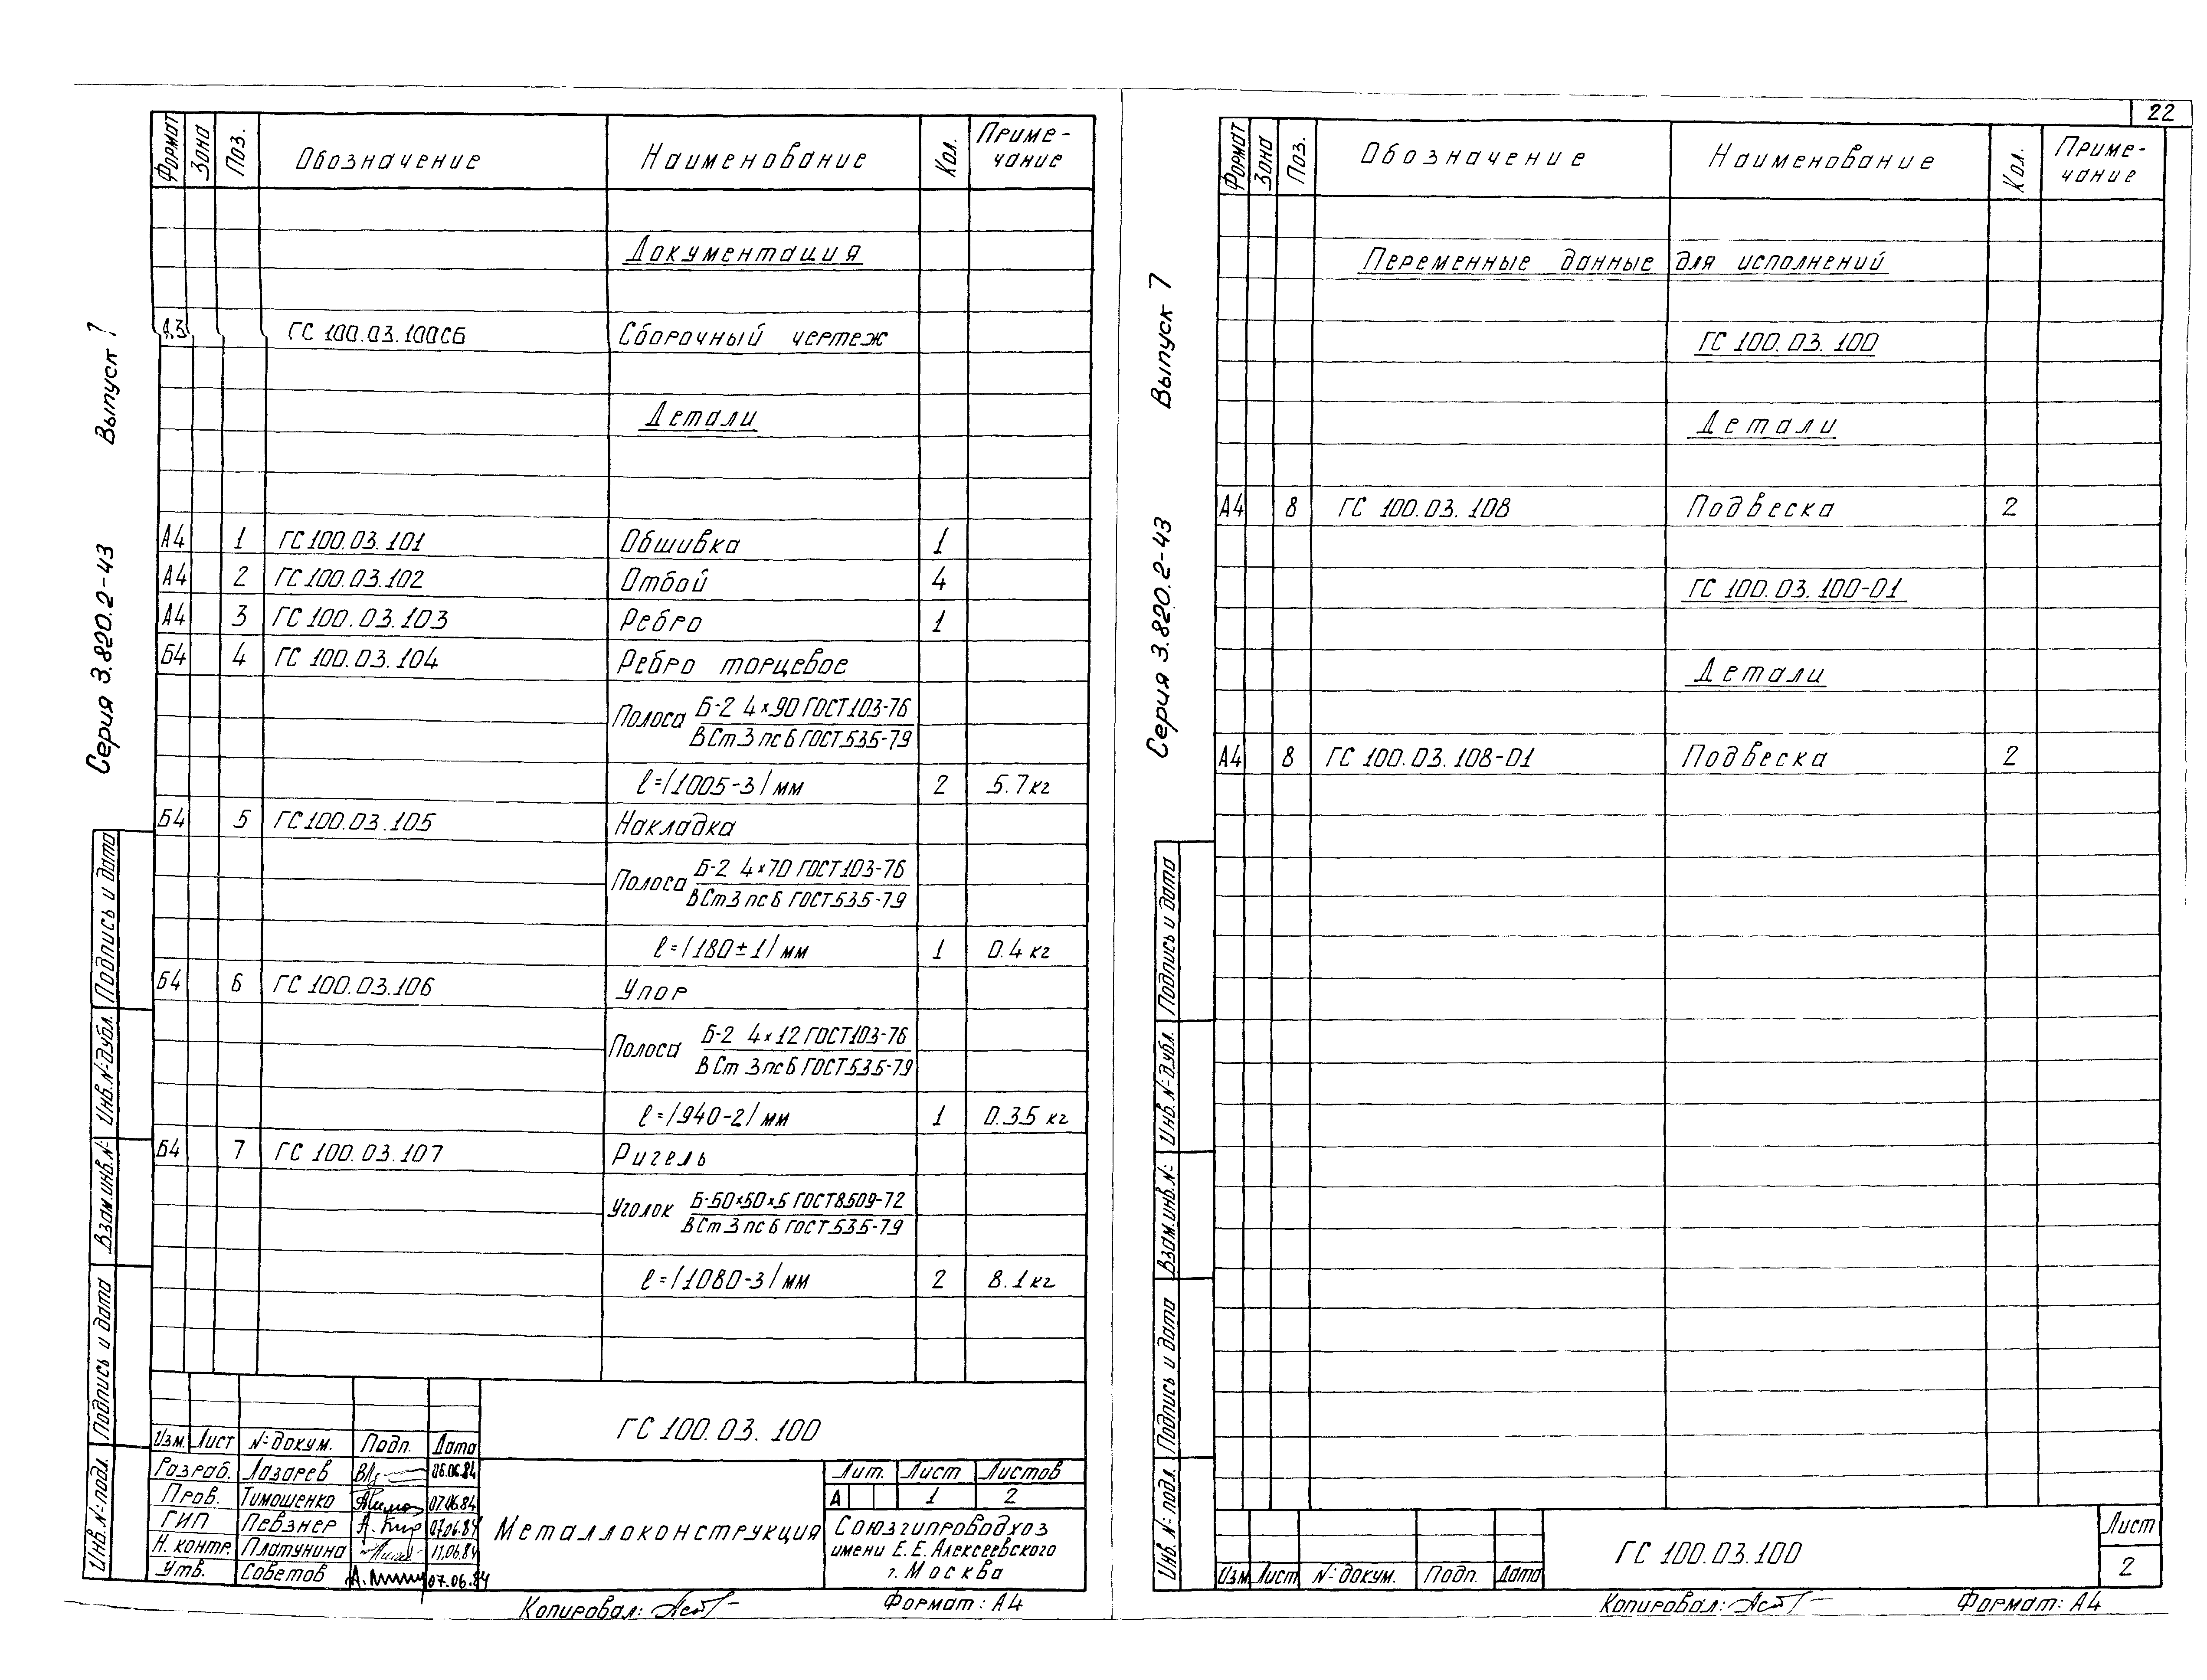 22
Формат Зона Поз. Обозначение Наименование Кол. Приме-
чание
Документация
А3 ГС 100.03.100СБ Сборочный чертеж
Детали
А4 1 ГС 100.03.101 Обшивка 1
А4 2 ГС 100.03.102 Отбой 4
А4 3 ГС 100.03.103 Ребро 1
Б4 4 ГС 100.03.104 Ребро торцевое
Полоса Б-2 4×90 ГОСТ 103-76
ВСт 3 пс 6 ГОСТ 535-79
ℓ=/1005-3/ мм 2 5.7 кг
Б4 5 ГС 100.03.105 Накладка
Полоса Б-2 4×70 ГОСТ 103-76
ВСт 3 пс 6 ГОСТ 535-79
ℓ=/180±1/ мм 1 0.4 кг
Б4 6 ГС 100.03.106 Упор
Полоса Б-2 4×12 ГОСТ 103-76
ВСт 3 пс 6 ГОСТ 535-79
ℓ=/940-2/ мм 1 0.35 кг
Б4 7 ГС 100.03.107 Ригель
Уголок Б-50×50×5 ГОСТ 8509-72
ВСт 3 пс 6 ГОСТ 535-79
ℓ=/1080-3/ мм 2 8.1 кг
Серия 3.820.2-43 Выпуск 7
Инв.№ подл. Подпись и дата Взам.инв.№ Инв.№ дубл. Подпись и дата
ГС 100.03.100
Изм. Лист № докум. Подп. Дата
Разраб. Лазарев 06.06.84
Пров. Тимошенко 07.06.84
ГИП Певзнер 07.06.84
Н. контр. Платунина 11.06.84
Утв. Советов 07.06.84
Металлоконструкция
Лит. Лист Листов
А 1 2
Союзгипроводхоз
имени Е.Е. Алексеевского
г. Москва
Копировал: Формат: А4
Формат Зона Поз. Обозначение Наименование Кол. Приме-
чание
Переменные данные для исполнений
ГС 100.03.100
Детали
А4 8 ГС 100.03.108 Подвеска 2
ГС 100.03.100-01
Детали
А4 8 ГС 100.03.108-01 Подвеска 2
Серия 3.820.2-43 Выпуск 7
Инв.№ подл. Подпись и дата Взам.инв.№ Инв.№ дубл. Подпись и дата
Изм Лист № докум. Подп. Дата
ГС 100.03.100
Лист
2
Копировал: Формат: А4